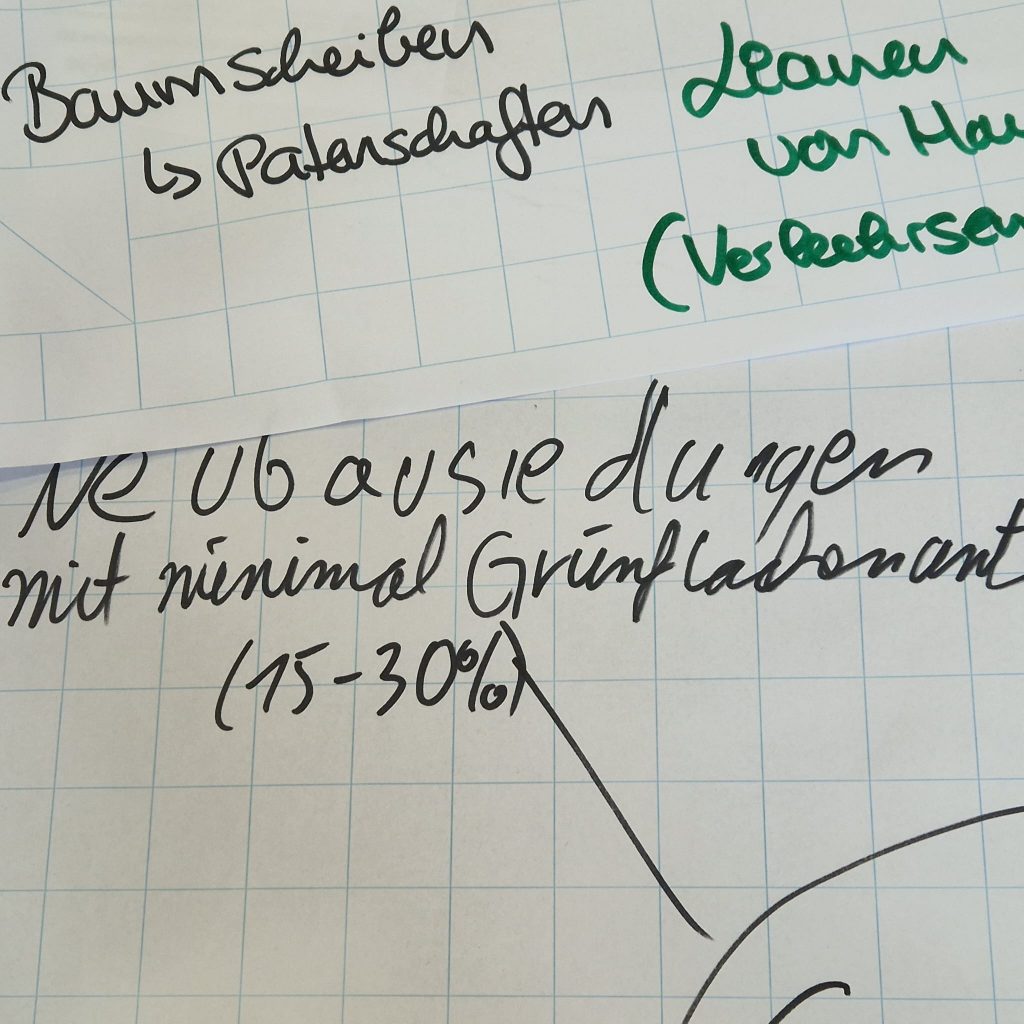 Baumscheiben
↳ Patenschaften
von
(Verkehrsen
Neubausiedlungen
mit minimal Grünflächenant
(15-30%)